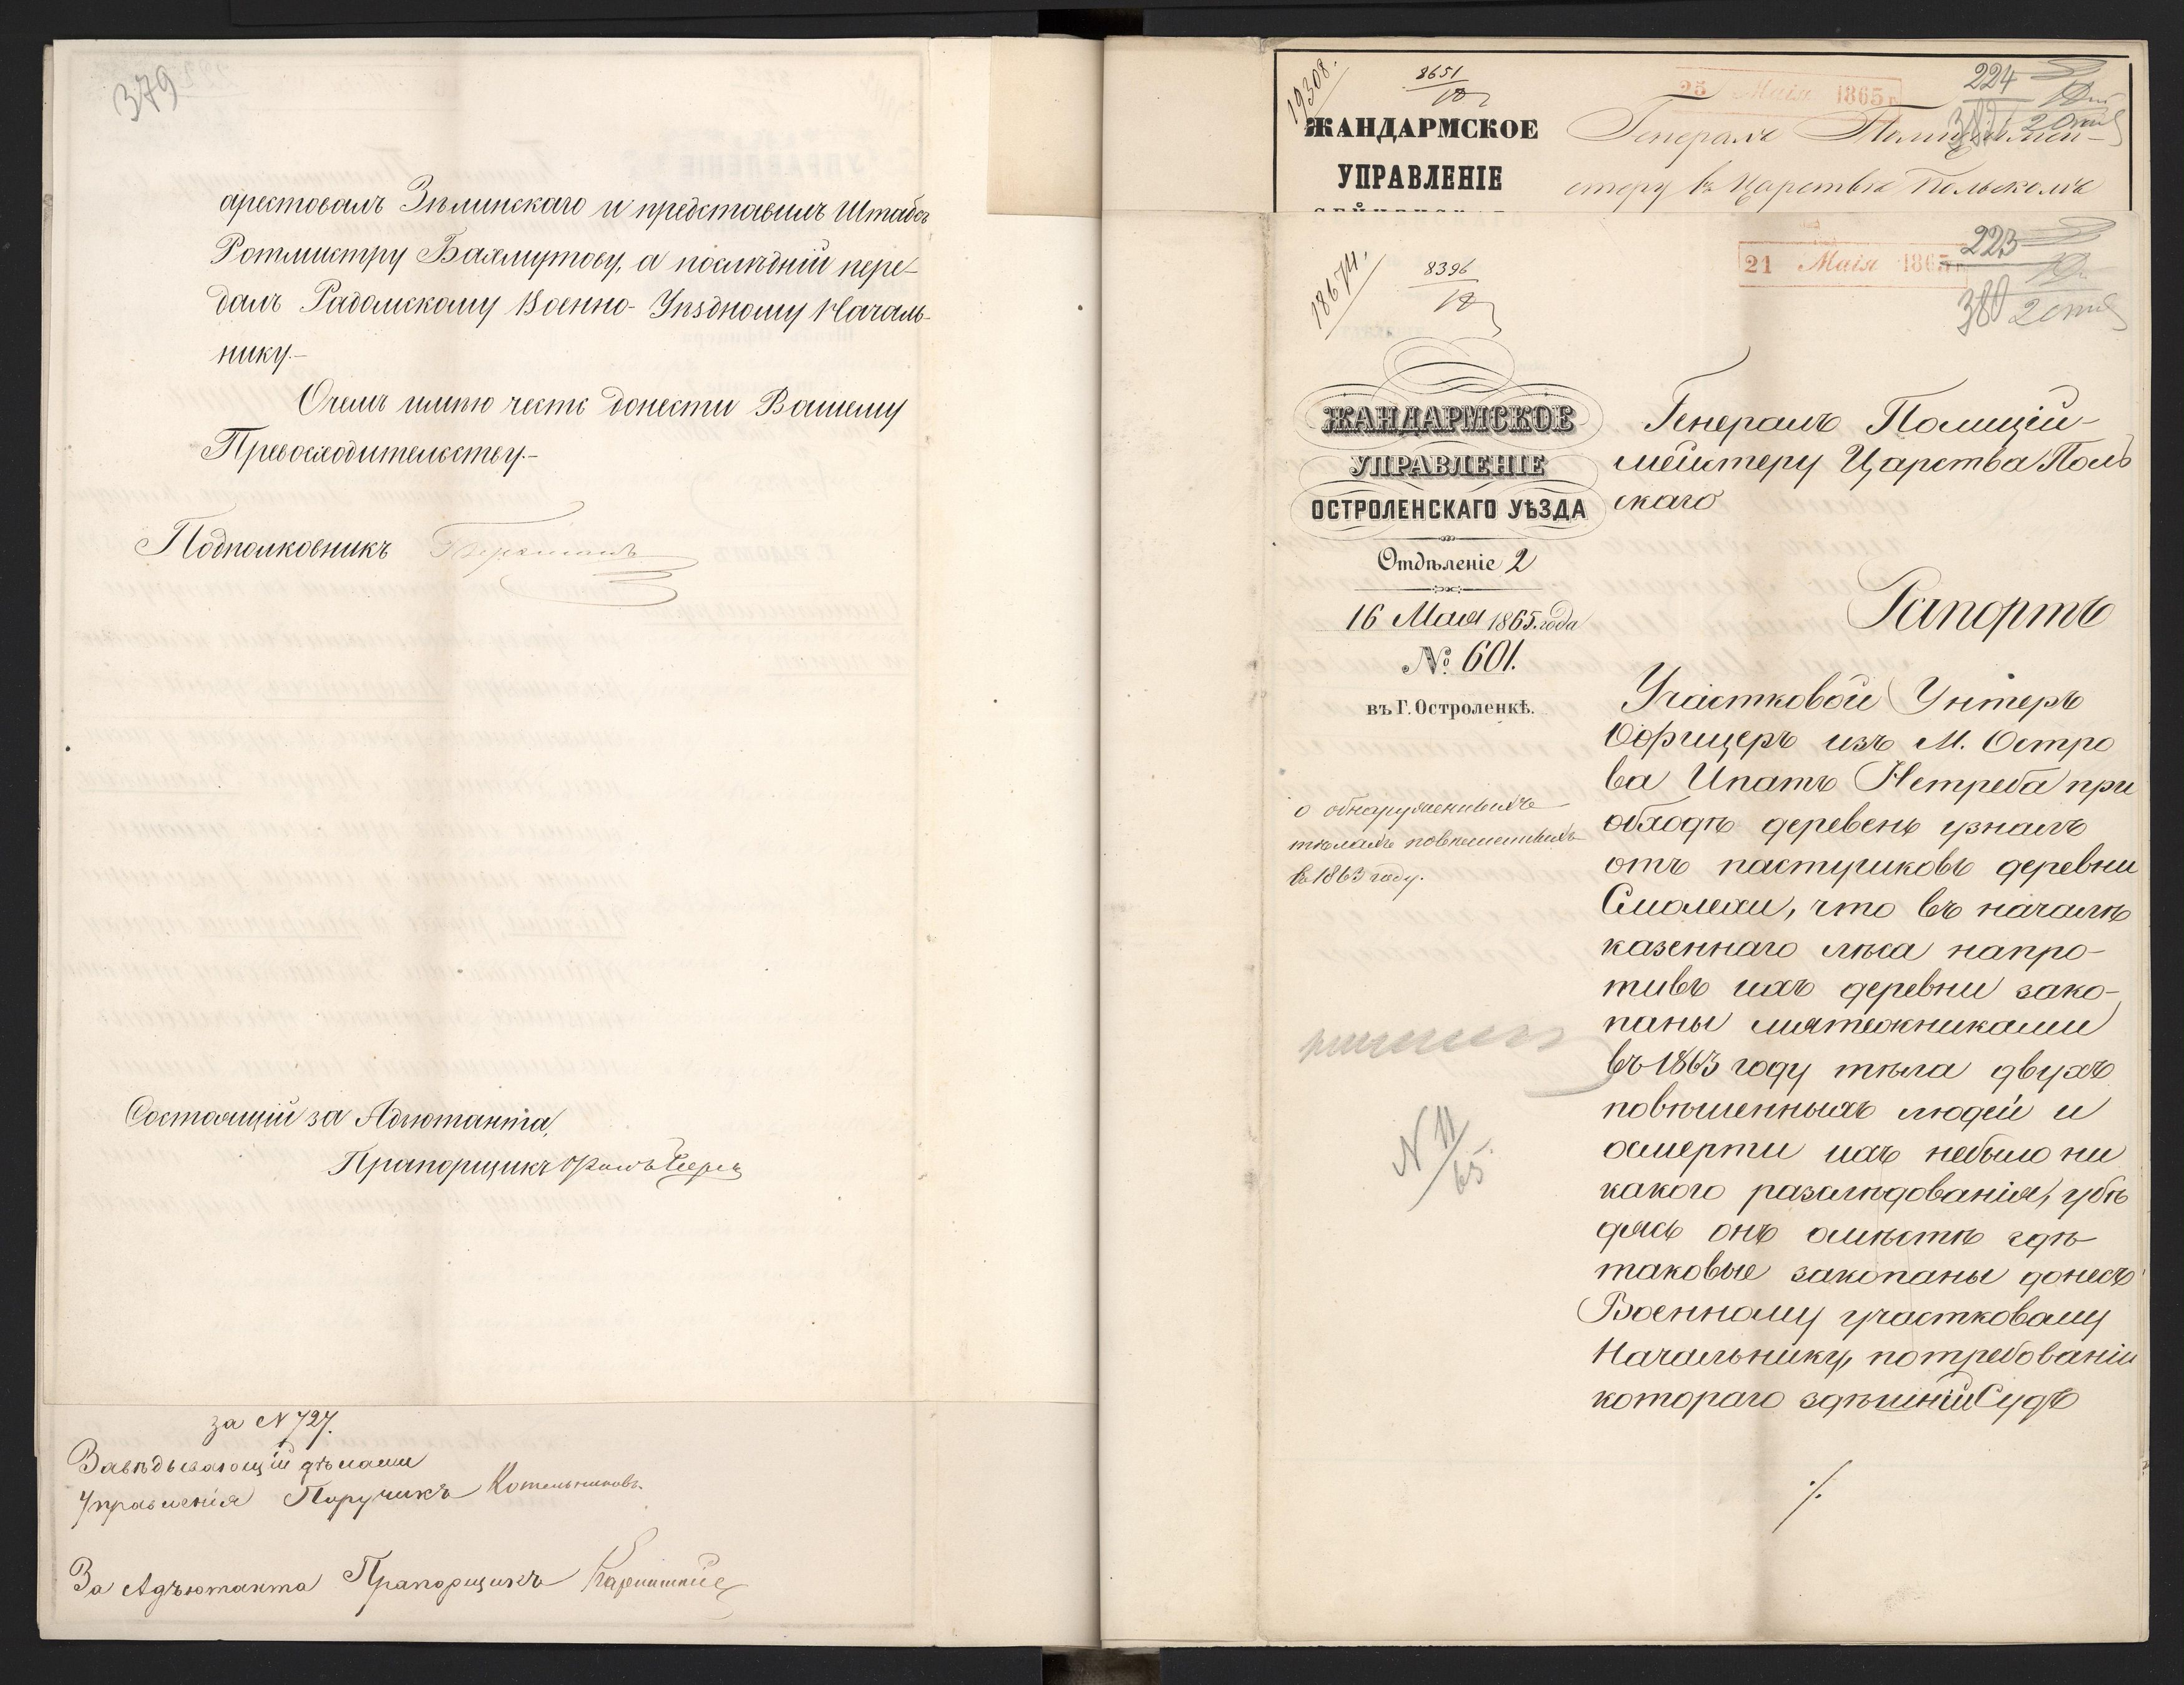 379
арестовалъ Зѣлинскаго и представилъ Штабсъ
Ротмистру Бахмутову, а послѣдній пере-
далъ Радомскому Военно-Уѣздному Началь-
нику.-
Очемъ имѣю честь донести Вашему
Превосходительству.-
Подполковникъ
Состоящій за Адъютанта,
Прапорщикъ
за N 727.
Завѣдывающій дѣлами
Управленія Поручикъ Котельниковъ.
За Адъютанта Прапорщикъ
19308.
8651
25 Маія 1865 г.
224
ЖАНДАРМСКОЕ
УПРАВЛЕНІЕ
Генералъ Полицiймей-
стеру въ Царствѣ Польскомъ
18674.
8396
21 Маія 1865 г.
223
380
ЖАНДАРМСКОЕ
УПРАВЛЕНІЕ
ОСТРОЛЕНСКАГО УѢЗДА
Отдѣленіе 2
16 Мая 1865 года
№ 601.
въ Г. Остроленкѣ.
о обнаруженныхъ
тѣлахъ повѣшенныхъ
въ 1863 году.
N 11/65.
Генералъ Полицій-
мейстеру Царства Поль
скаго
Рапортъ
Участковой Унтеръ
Офицеръ изъ М. Остро
ва Ипатъ Нетреба при
обходѣ деревень узналъ
отъ пастушковъ деревни
Смолехи, что въ началѣ
казеннаго лѣса напро-
тивъ ихъ деревни зако-
паны мятежниками
въ 1863 году тѣла двухъ
повѣшенныхъ людей и
осмерти ихъ небыло ни
какого разслѣдованія, убѣ
дясь онъ омѣстѣ гдѣ
таковые закопаны донесъ
Военному участковому
Начальнику, потребованіи
котораго здѣшній Судъ
./.